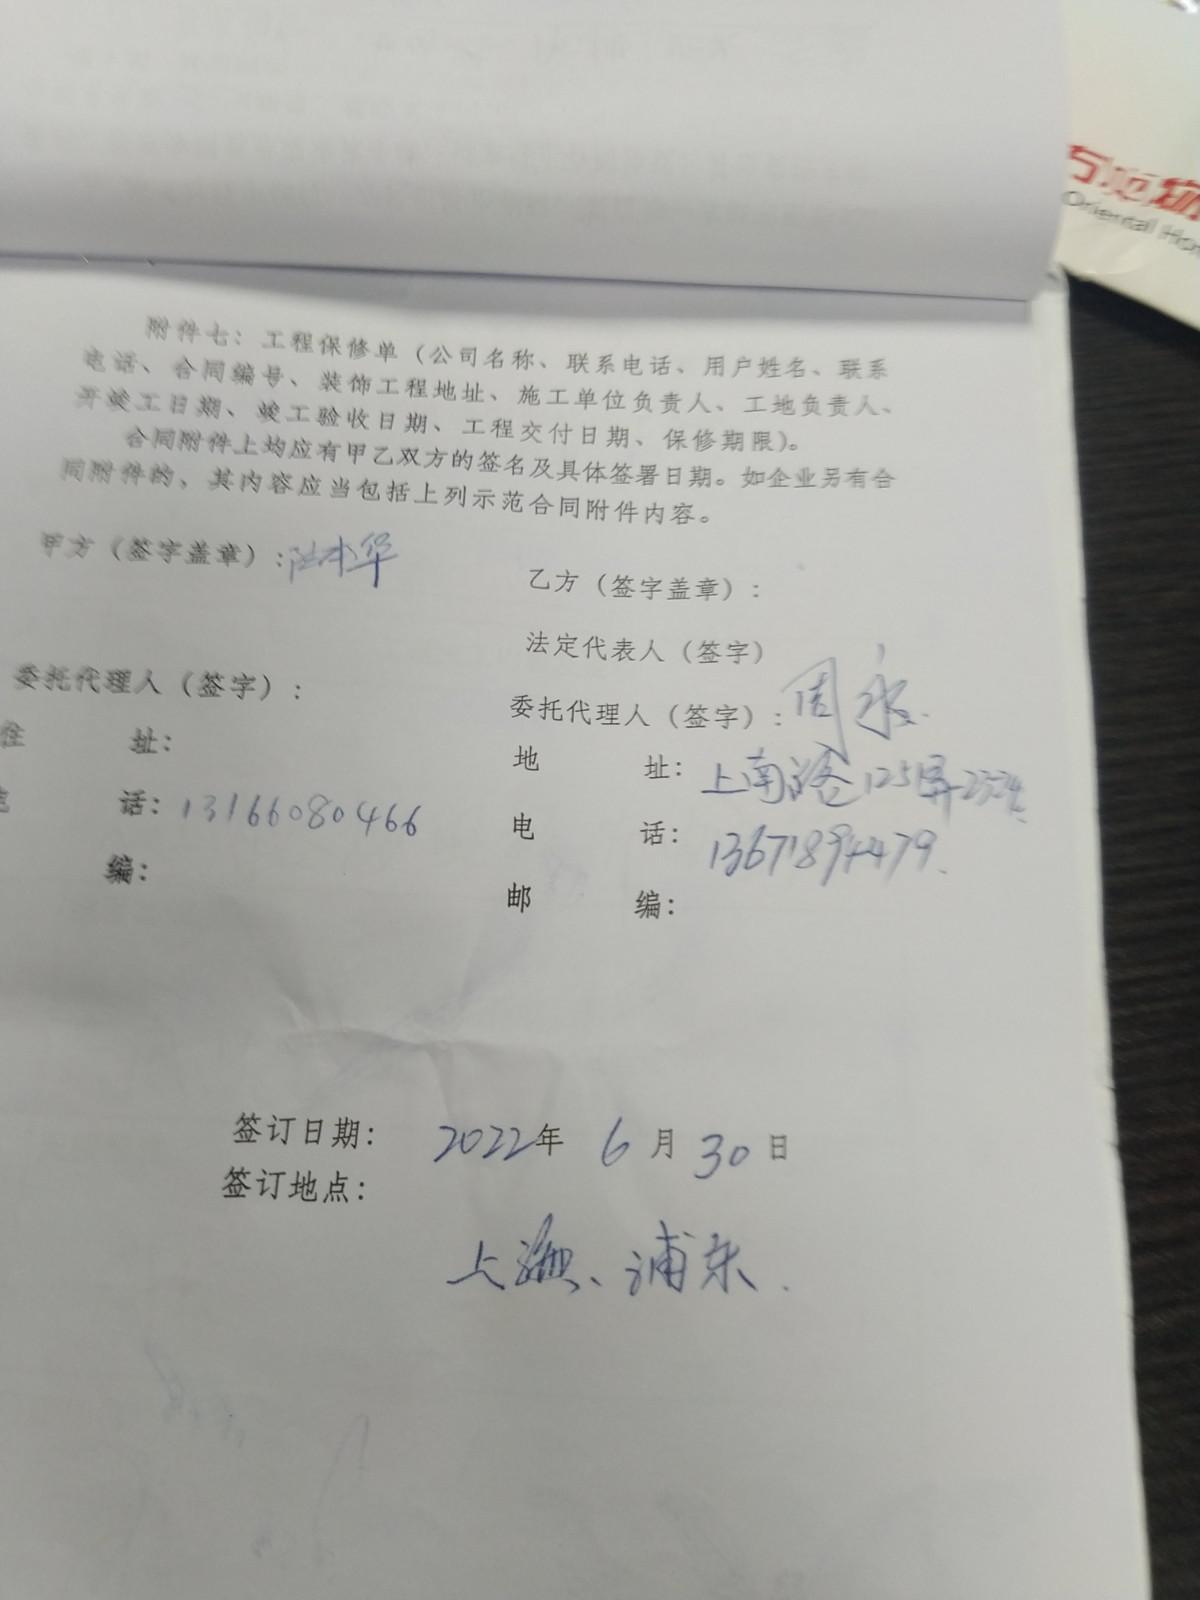 附件七：工程保修单（公司名称、联系电话、用户姓名、联系
电话、合同编号、装饰工程地址、施工单位负责人、工地负责人、
开竣工日期、竣工验收日期、工程交付日期、保修期限）。
合同附件上均应有甲乙双方的签名及具体签署日期。如企业另有合
同附件的、其内容应当包括上列示范合同附件内容。
甲方（签字盖章）：
乙方（签字盖章）：
法定代表人（签字）
委托代理人（签字）：
委托代理人（签字）：周永
住 址：
地 址：上南路125弄
话：13166080466
电 话：13671894479
编：
邮 编：
签订日期：2022年 6月30日
签订地点：
上海、浦东.
Oriental